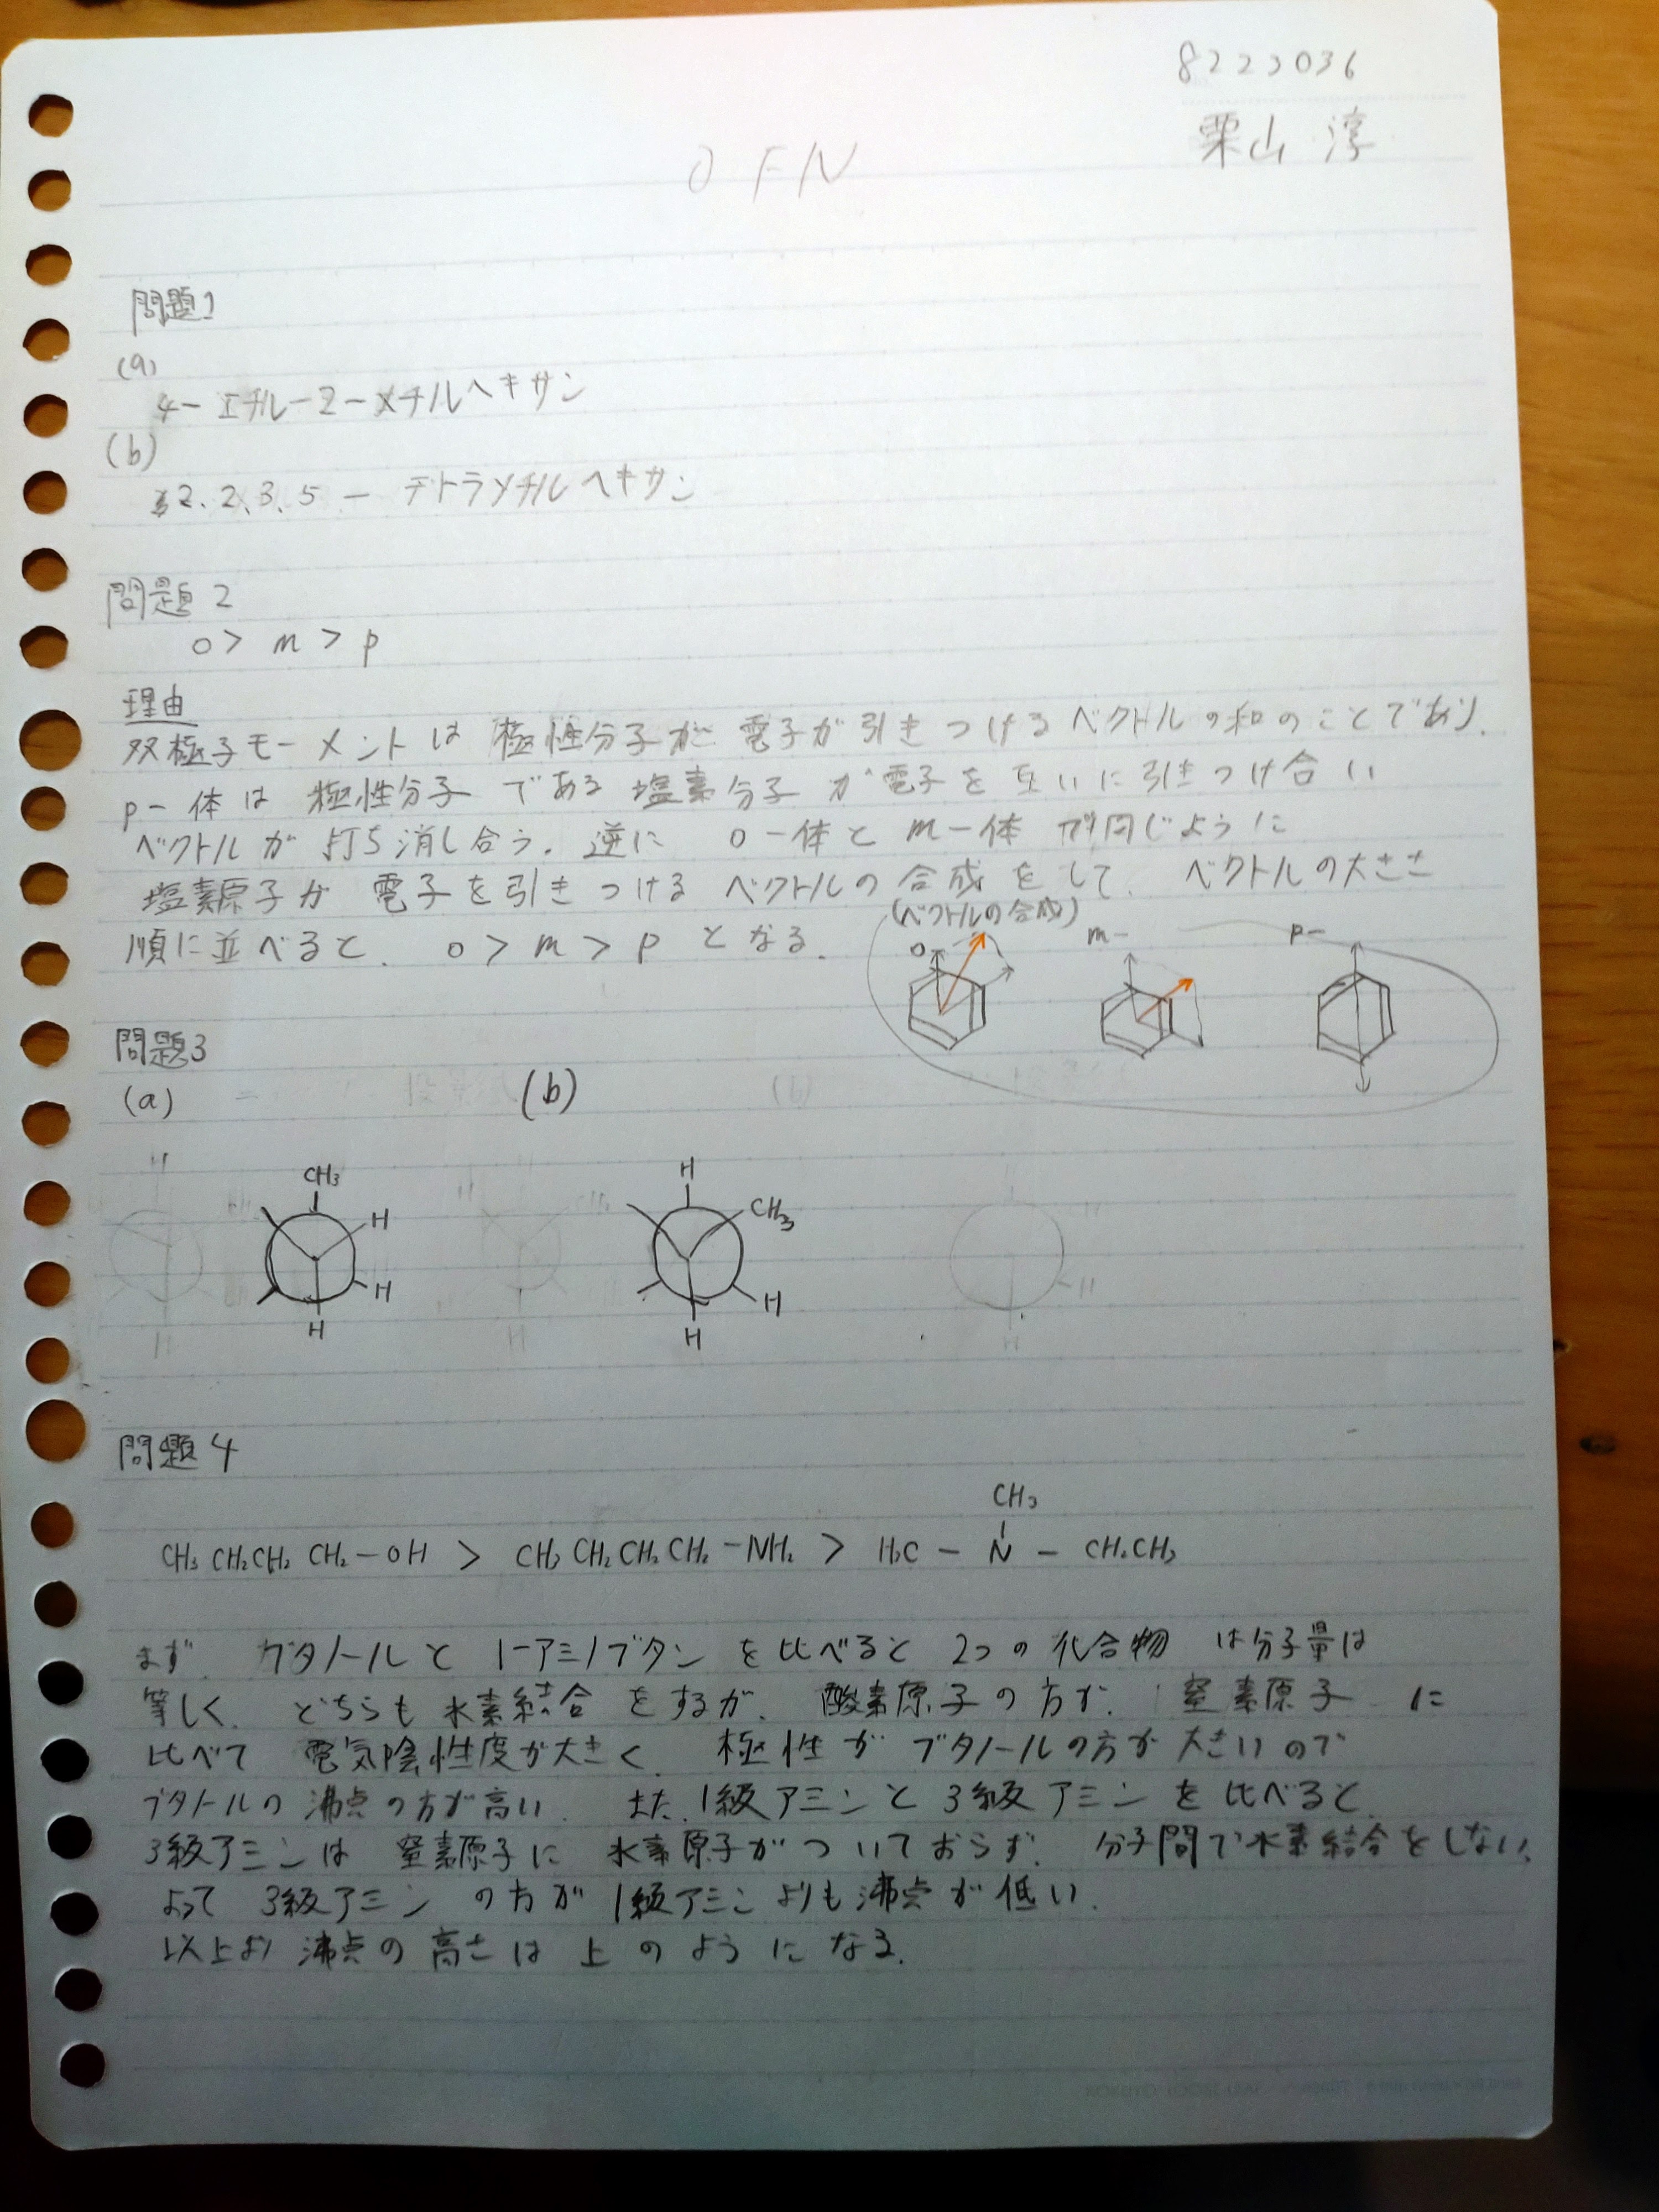 8223036
栗山 淳
OFN
問題1
(a)
4-エチル-2-メチルヘキサン
(b)
2、2、3、5-テトラメチルヘキサン
問題2
o > m > p
理由
双極子モーメントは極性分子が電子が引きつけるベクトルの和のことであり、
p-体は極性分子である塩素分子が電子を互いに引きつけ合い
ベクトルが打ち消し合う。逆にo-体とm-体が同じように
塩素原子が電子を引きつけるベクトルの合成をして、ベクトルの大きさ
順に並べると、o > m > pとなる。
(ベクトルの合成)
o- m- p-
問題3
(a) (b)
CH3 H
H CH3
H H
H H
問題4
CH3
CH3CH2CH2CH2-OH > CH3CH2CH2CH2-NH2 > H3C-N-CH2CH3
まず、ブタノールと1-アミノブタンを比べると2つの化合物は分子量は
等しく、どちらも水素結合をするが、酸素原子の方が、窒素原子に
比べて電気陰性度が大きく、極性がブタノールの方が大きいので
ブタノールの沸点の方が高い。また、1級アミンと3級アミンを比べると、
3級アミンは窒素原子に水素原子がついておらず、分子間で水素結合をしない。
よって3級アミンの方が1級アミンよりも沸点が低い。
以上より沸点の高さは上のようになる。